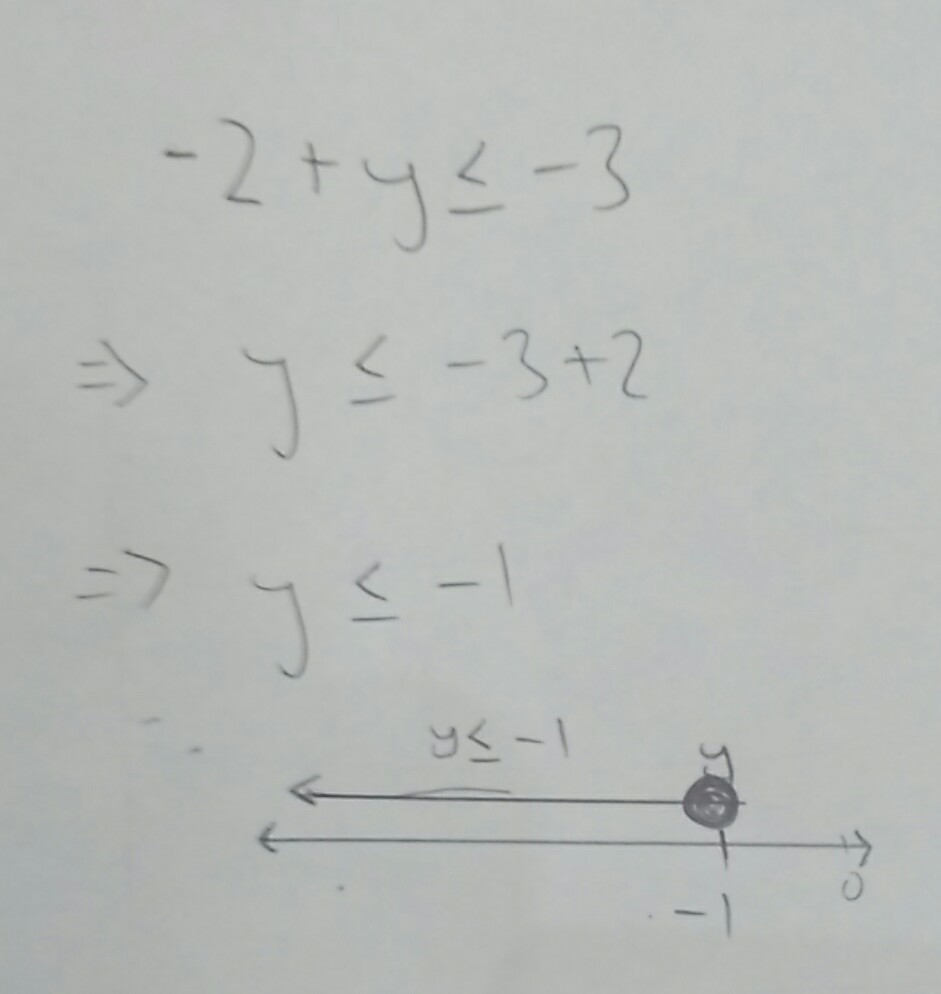 -2 + y ≤ -3
⇒ y ≤ -3+2
⇒ y ≤ -1
y ≤ -1
y
-1
0